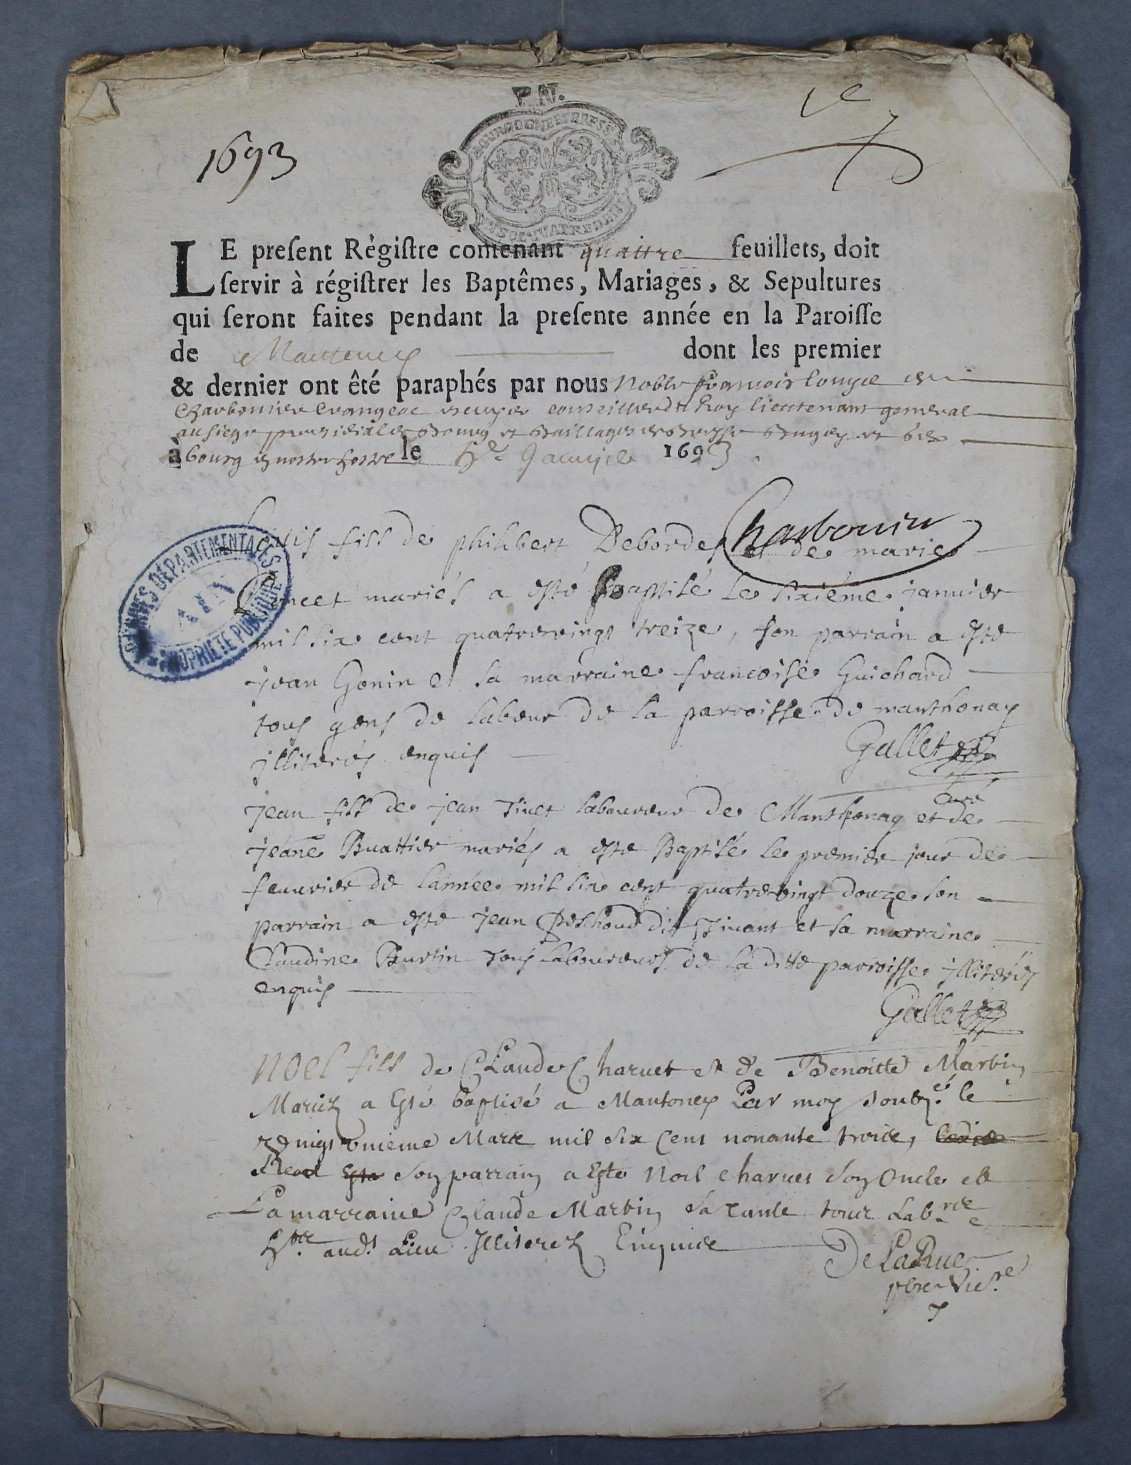 P. N.
BOURGOGNE ET BRESSE
1693
LE preſent Régiſtre contenant quattre feuillets, doit
ſervir à régiſtrer les Baptêmes, Mariages, & Sepultures
qui ſeront faites pendant la preſente année en la Paroiſſe
de Mantenay dont les premier
& dernier ont êté paraphés par nous Noble François
Charbonnier conseiller du Roy lieutenant general
au siege presidial de Bourg et Bresse Bugey et Gex
à bourg en nostre hostel le Janvier 1693
Charbonnier
Louis fils de philibert Deborde et de marie
mariés a esté baptisé le sixiéme janvier
mil six cent quatrevingt treize, son parrain a esté
jean Gonin et la marraine francoise Guichard
tous gens de labeur de la parroisse de manthonay
jlliterés enquis
Gallet
curé
jean fils de jean laboureur de Manthonay et de
jeane Buattier mariés a esté Baptisé le premier jour de
feuvrier de lannée mil six cent quatrevingt douze son
parrain a esté jean dit et sa marraine
Claudine Burtin tous laboureurs de la ditte parroisse jlliterés
enquis
Gallet
NOEL fils de CLaude Charvet et de Benoitte Martin
Mariez a Esté baptisé a Mantoney Par moy soubz.é le
vingt unieme Mars mil six cent nonante troise,
son parrain a Esté Noel charvet son Oncle et
La marraine Claude Martin sa tante tous Lab.rs
aud.t Lieu Illiterez Enquise
De LaRue
pbre Vic.re
ARCHIVES DEPARTEMENTALES
AIN
PROPRIÉTÉ PUBLIQUE